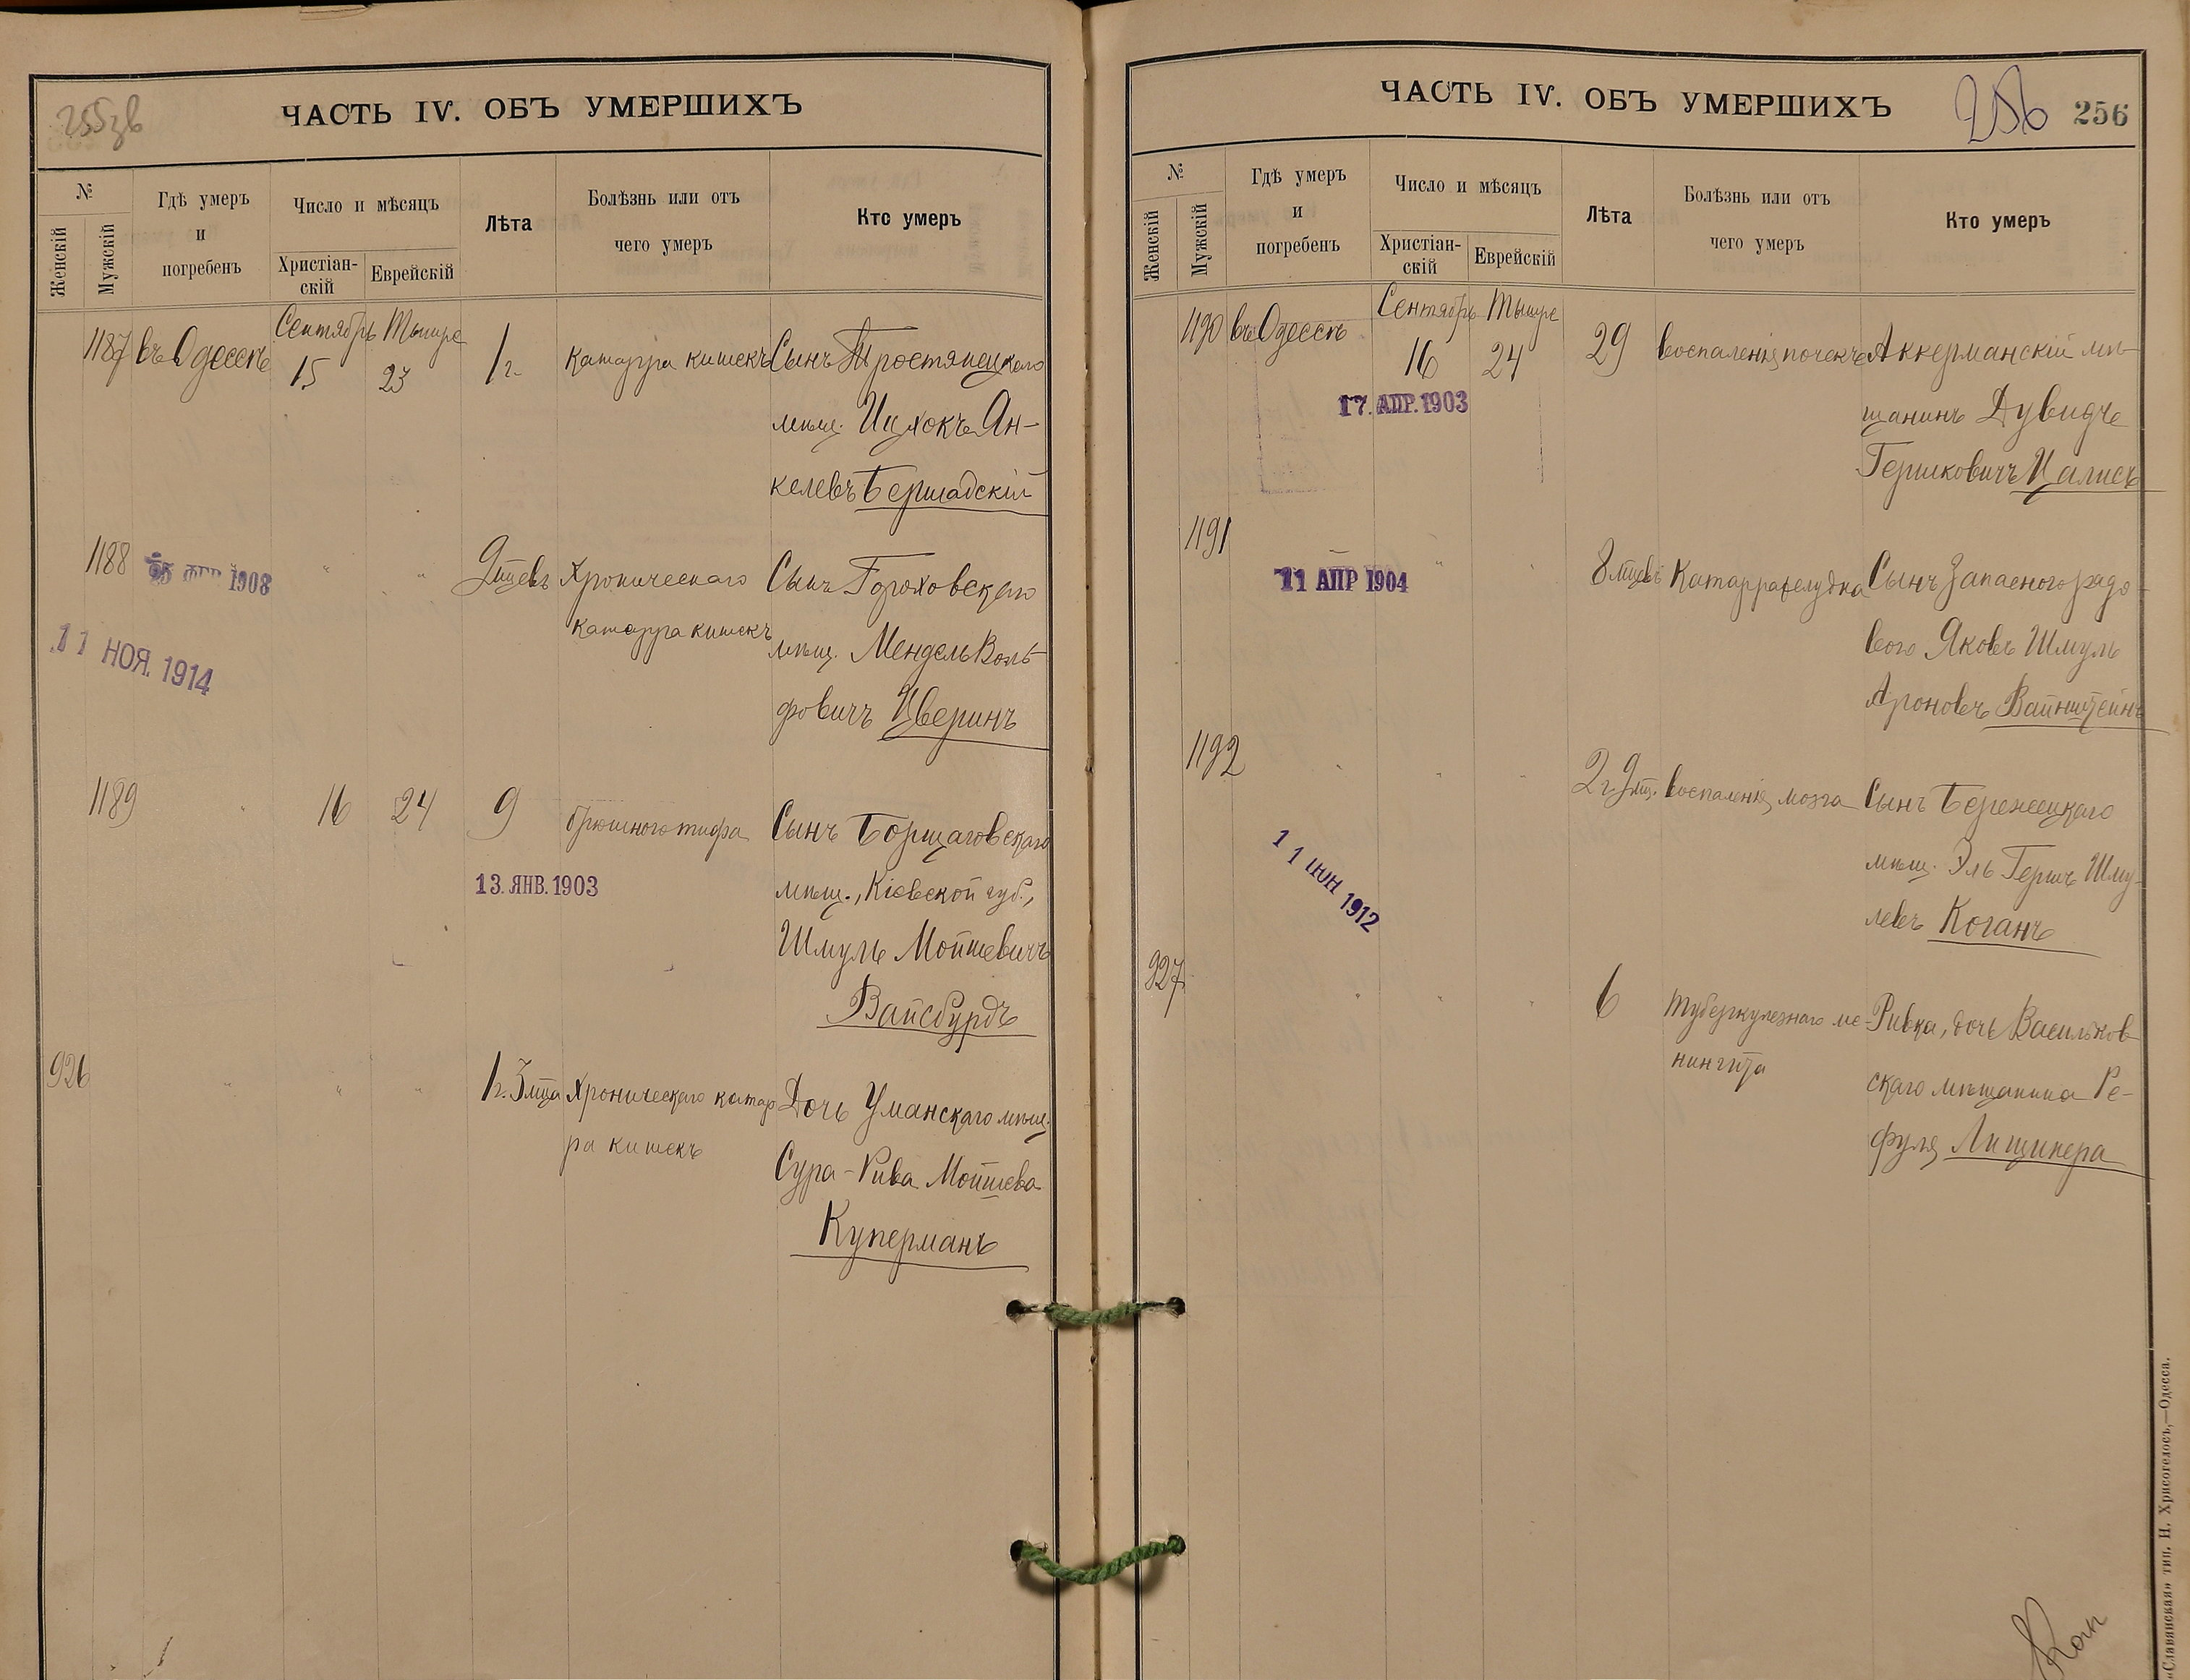 255зв
ЧАСТЬ IV. ОБЪ УМЕРШИХЪ
№
Женскій
Мужскій
Гдѣ умеръ
и
погребенъ
Число и мѣсяцъ
Христіан-
скій
Еврейскій
Лѣта
Болѣзнь или отъ
чего умеръ
Кто умеръ
1187 въ Одессѣ Сентябрь 15 Тышре 23 1 г. катарра кишекъ Сынъ Тростянецкаго
мѣщ. Ицхокъ Ян-
келевъ Бершадскій
1188 " " 9 мцевъ Хроническаго Сынъ Гороховскаго
катарра кишекъ мѣщ. Мендель Воль-
фовичъ Цверинъ
ФЕВ 1908
11 НОЯ. 1914
1189 " 16 24 9 брюшного тифа Сынъ Борщаговскаго
мѣщ., Кіевской губ.,
Шмуль Мойшевичъ
Вайсбурдъ
13. ЯНВ. 1903
926 " " " 1 г. 3 мца Хроническаго катар Дочь Уманскаго мѣщ.
ра кишекъ Сура-Рива Мойшева
Куперманъ
ЧАСТЬ IV. ОБЪ УМЕРШИХЪ
256
256
№
Женскій
Мужскій
Гдѣ умеръ
и
погребенъ
Число и мѣсяцъ
Христіан-
скій
Еврейскій
Лѣта
Болѣзнь или отъ
чего умеръ
Кто умеръ
1190 въ Одессѣ Сентябрь 16 Тышре 24 29 воспаленія почекъ Аккерманскій мѣ-
щанинъ Дувидъ
Гершковичъ Цалисъ
17. АПР. 1903
1191 " " 8 мцевъ Катарра желудка Сынъ Запасного рядо-
вого Яковъ Шмуль
Ароновъ Вайнштейнъ
11 АПР 1904
1192 " " " 2 г. 9 мц. воспаленія мозга Сынъ Бережецкаго
мѣщ. Эль Гершъ Шму-
левъ Коганъ
11 ІЮН 1912
927 " " " 6 Туберкулезнаго ме- Ривка, дочь Васильков-
нингита скаго мѣщанина Ре-
фуля Лищинера
«Славянская» тип. Н. Хрисогелосъ,—Одесса.